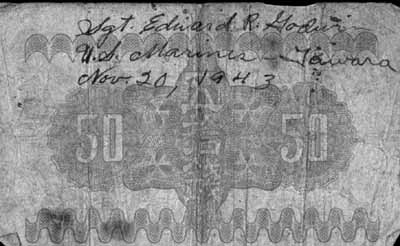 Sgt. Edward R. Godwin
U.S. Marines - Tawara
Nov. 20, 1943
50 50